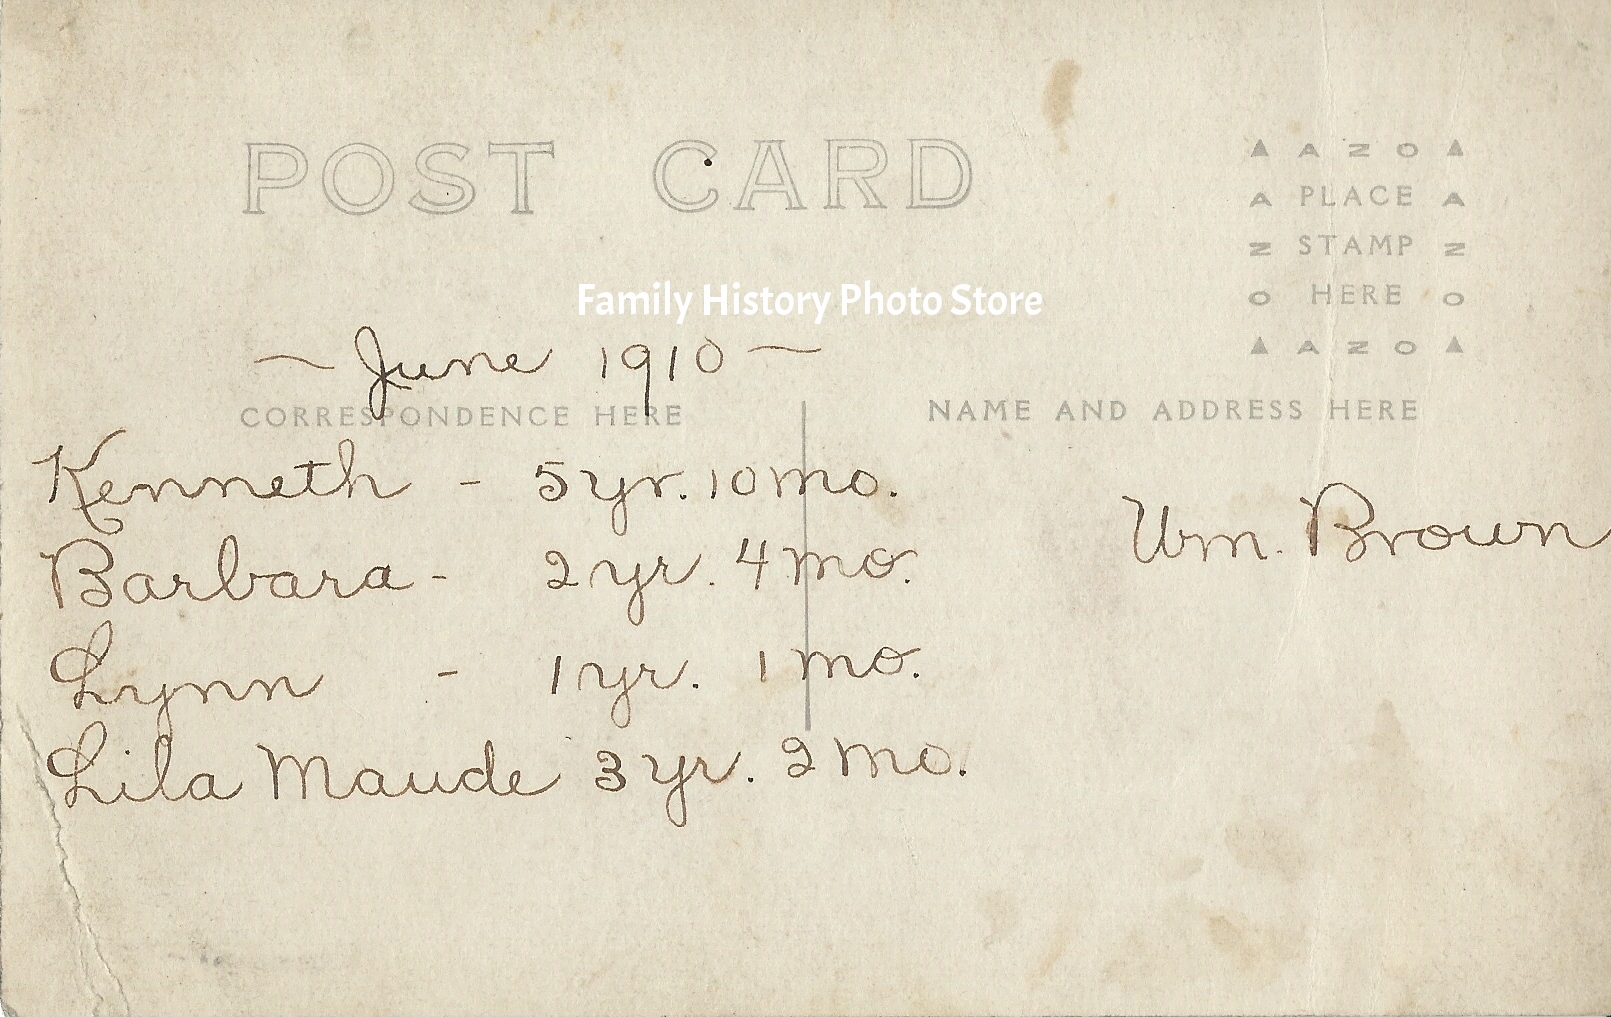 POST CARD
▲ A Z O ▲
A PLACE A
Z STAMP Z
O HERE O
▲ A Z O ▲
Family History Photo Store
~ June 1910 ~
CORRESPONDENCE HERE
NAME AND ADDRESS HERE
Kenneth - 5 yr. 10 mo.
Barbara - 2 yr. 4 mo.
Lynn - 1 yr. 1 mo.
Lila Maude 3 yr. 2 mo.
Wm. Brown